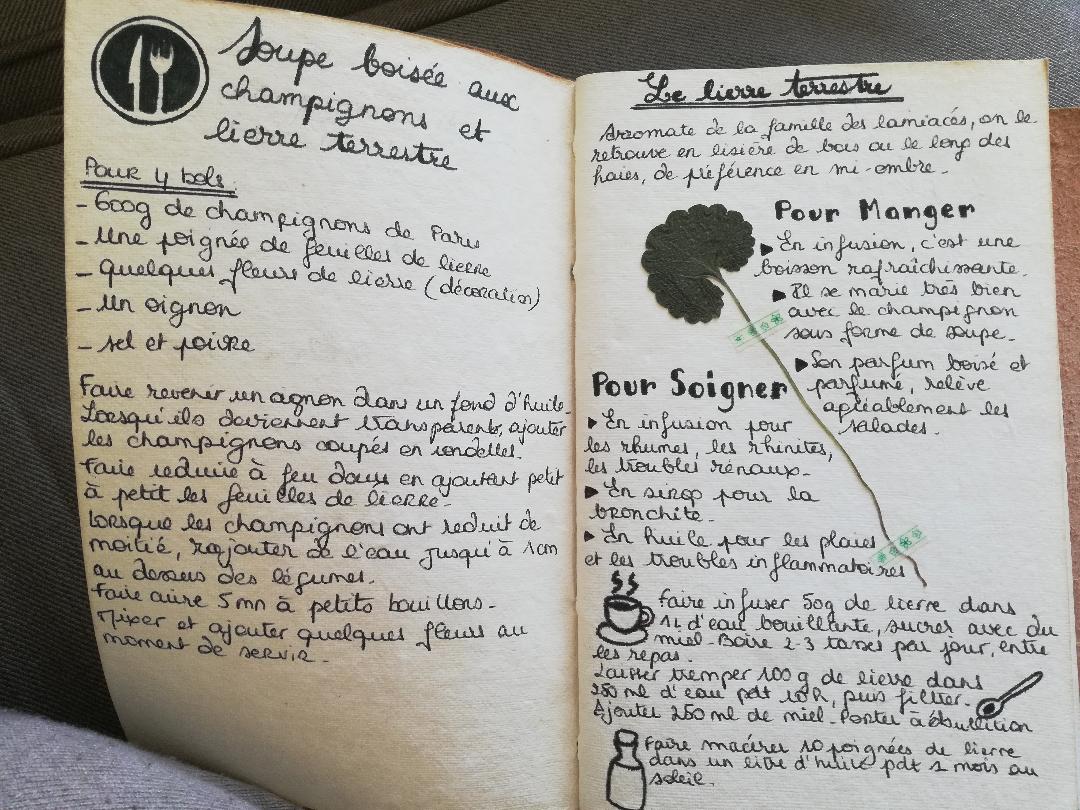 Soupe boisée aux
champignons et
lierre terrestre
Pour 4 bols.
- 600g de champignons de Paris
- Une poignée de feuilles de lierre
- quelques fleurs de lierre (décoration)
- un oignon
- sel et poivre
Faire revenir un oignon dans un fond d'huile.
Lorsqu'ils deviennent transparents, ajouter
les champignons coupés en rondelles.
Faire réduire à feu doux en ajoutant petit
à petit les feuilles de lierre.
Lorsque les champignons ont réduit de
moitié, rajouter de l'eau jusqu'à 1cm
au dessus des légumes.
Faire cuire 5mn à petits bouillons.
Mixer et ajouter quelques fleurs au
moment de servir.
Le lierre terrestre
Aromate de la famille des lamiacés, on le
retrouve en lisière de bois ou le long des
haies, de préférence en mi-ombre.
Pour Manger
En infusion, c'est une
boisson rafraîchissante.
Il se marie très bien
avec le champignon
sous forme de soupe.
Son parfum boisé et
parfumé, relève
agréablement les
salades.
Pour Soigner
En infusion pour
les rhumes, les rhinites,
les troubles rénaux.
En sirop pour la
bronchite.
En huile pour les plaies
et les troubles inflammatoires
Faire infuser 50g de lierre dans
1L d'eau bouillante, sucrer avec du
miel. Boire 2-3 tasses par jour, entre
les repas.
Laisser tremper 100g de lierre dans
250 ml d'eau pdt h, puis filtrer.
Ajouter 250ml de miel. Porter à ébullition
Faire macérer 10 poignées de lierre
dans un litre d'huile pdt 1 mois au
soleil.